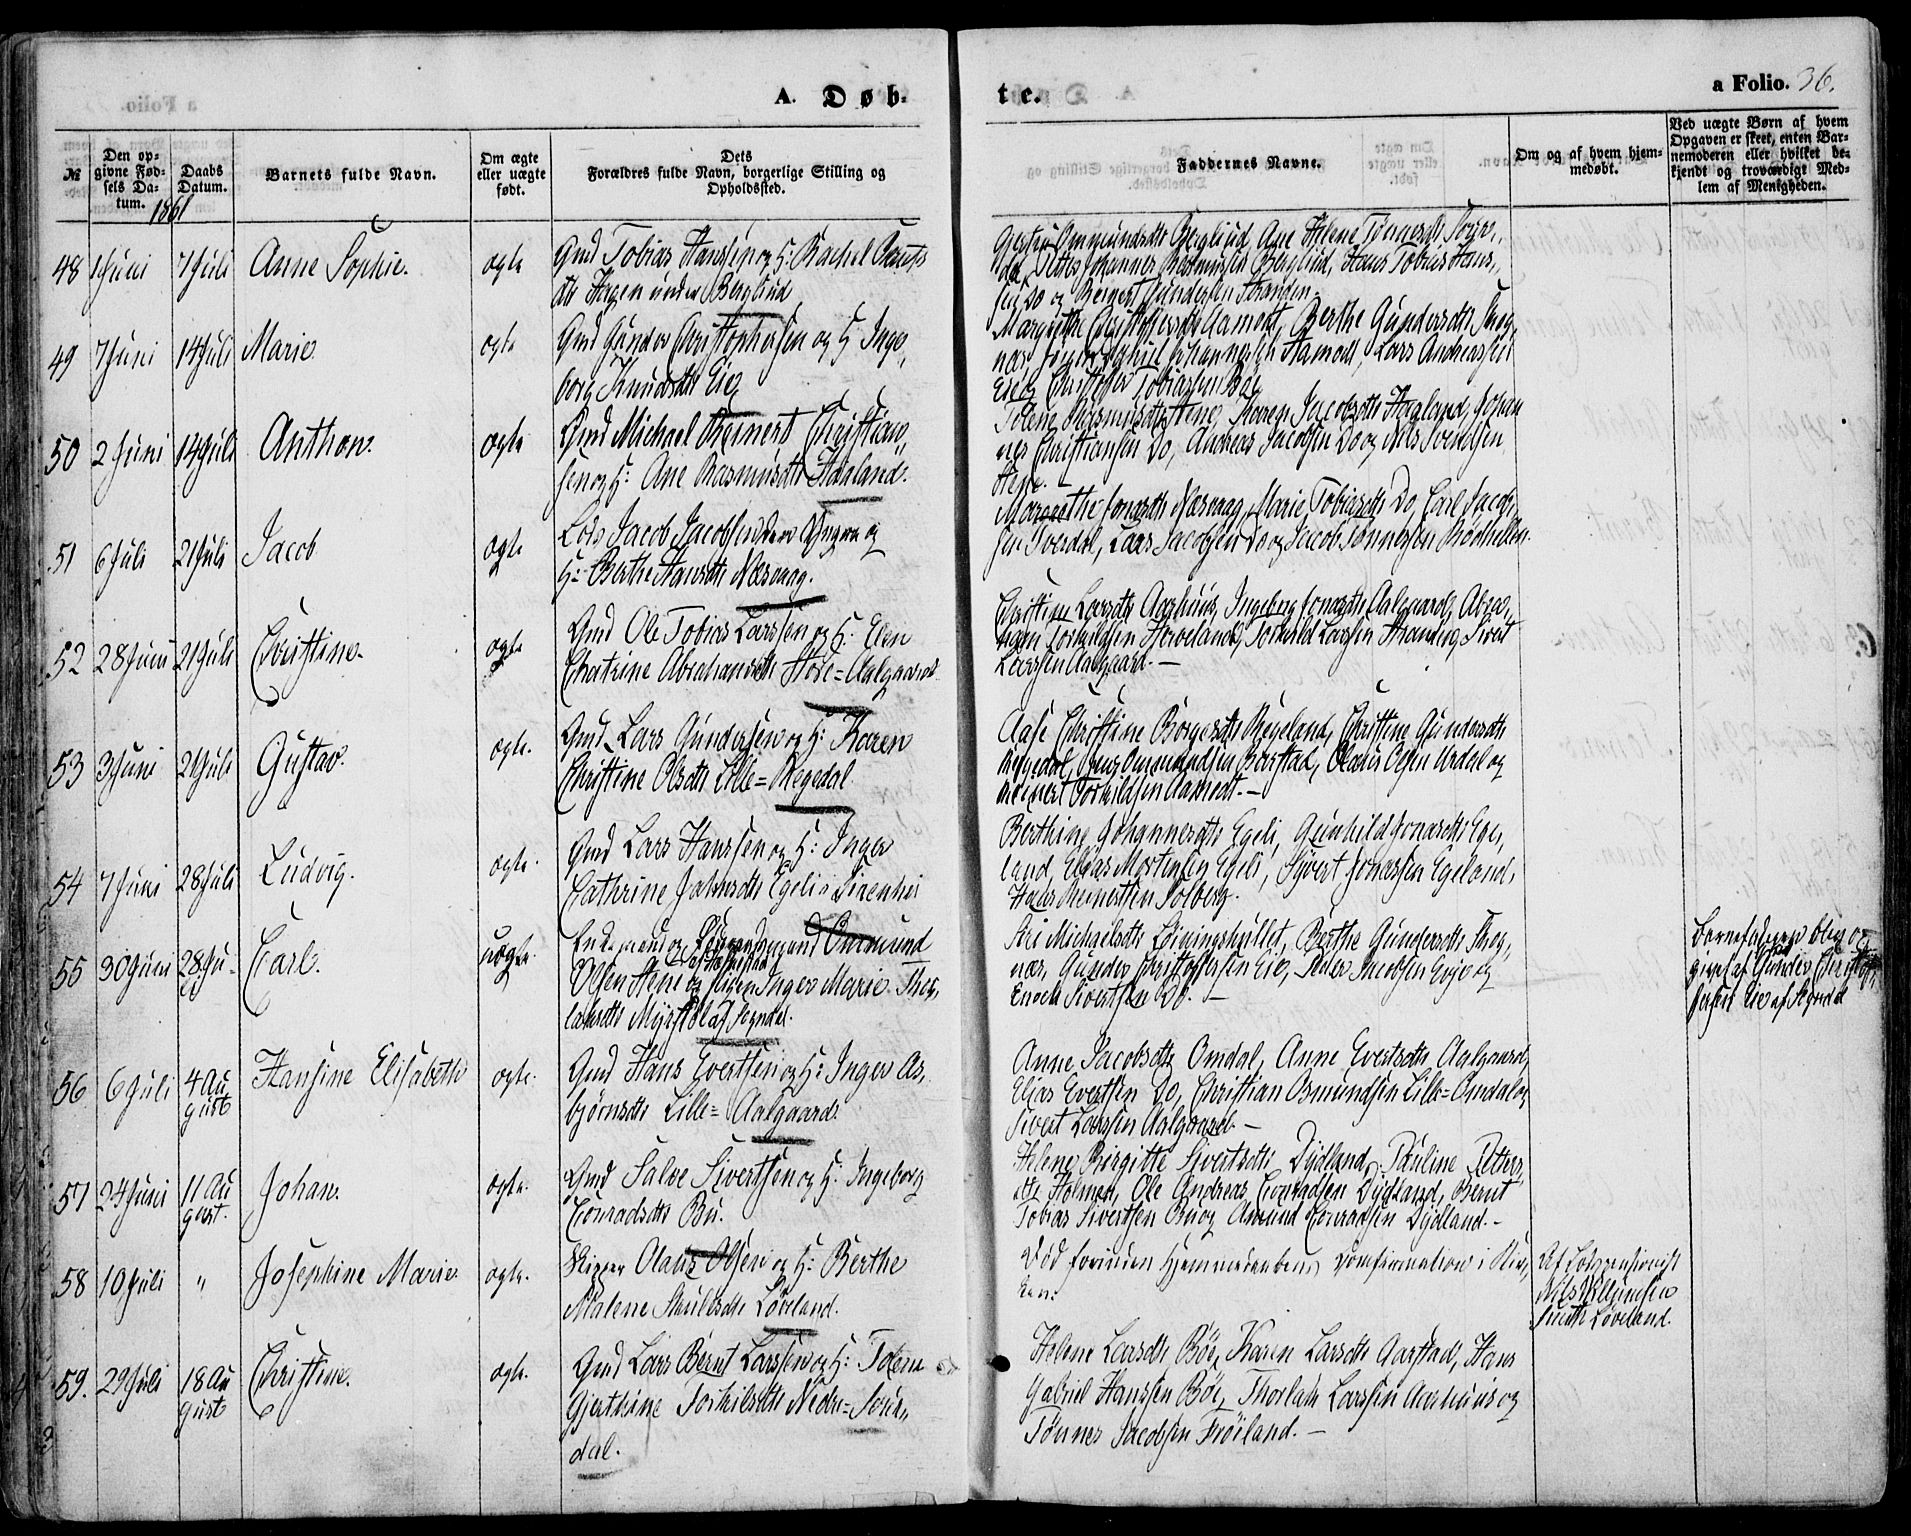 A. Døb-
te.
a Folio. 36.
№
Den op-
givne Fød-
sels Da-
tum.
1861
Daabs
Datum.
Barnets fulde Navn.
Om ægte
eller uægte
født.
Dets
Forældres fulde Navn, borgerlige Stilling og
Opholdssted.
Faddernes Navne.
Om og af hvem hjem-
medøbt.
Ved uægte Børn af hvem
Opgaven er skeet, enten Bar-
nemoderen eller hvilket be-
kjendt og troværdigt Med-
lem af Menigheden.
48 1 Juni 7 Juli Anne Sophie. ægte Gmd Tobias Hanssen og H: Rachel
Hagen under Bergliud
Ommundsdtr Bergliud, Ane Helene Tønnesdtr
Johannes Rasmussen Bergliud, Hans Tobias Hans,
sen Do og Reinert Gundersen Stranden.
49 7 Juni 14 Juli Marie ægte Gmd Gunder Christophersen og H: Inge,
borg Knudsdtr Eie
Margrethe Christophersdtr Aamodt, Berthe Gundersdtr Skog,
nær, Johannessen Aamodt, Lars Andreassen
Eie og Christoffer Tobiassen Bøe
50 2 Juni 14 Juli Anthon. ægte Gmd Michael Reinert Christian,
sen og H: Ane Rasmusdtr Haaland.
Tolene Rasmusdtr Hene, Karen Jacobsdtr Haaland, Johan
nes Christiansen Do, Andreas Jacobsen Do og Nils Svendsen
Hene.
51 6 Juli 21 Juli Jacob ægte Lods Jacob Jacobsen den Yngre og
H: Berthe Hansdtr Næsvaag.
Margrethe Jonasdtr Næsvaag, Marie Tobiasdtr Do, Carl Jacob,
sen Tversdal, Lars Jacobsen Do og Jacob Tønnessen Rødhellen.
52 28 Juni 21 Juli Christine. ægte Gmd Ole Tobias Larssen og H: Elen
Chatrine Abrahamsdtr Store=Aalgaard.
Christine Larsdtr Aarhuus, Ingeborg Jonasdtr Aalgaard, Abra,
ham Torkildsen Hoveland, Torkild Larssen Strand og Sivert
Larssen Aalgaard.
53 3 Juni 21 Juli Gustav. ægte. Gmd Lars Gundersen og H: Karen
Christine Olsdtr Lille=Regedal
Aase Christine Børgesdtr Regeland, Christine Gundersdtr
Regedal, Jens Ommundsen Barstad, Olaus Olsen Urdal og
Reinert Torkildsen Aamodt.
54 7 Juni 28 Juli Ludvig. ægte. Gmd Lars Hanssen og H: Inger
Cathrine Johnsdtr Egeli i Sirenhei
Berthine Johannesdtr Egeli, Gunhild Jonasdtr Ege,
land, Elias Mortensen Egeli, Syvert Jonassen Egeland,
Hans Reinertsen Solberg.
55 30 Juni 28 Ju- Carl. uægte. Enkemand og Ommund
Olsen Hene og Pigen Inger Marie Thor,
laksdtr Myrstøl af Sogndal.
Siri Michaelsdtr Berthe Gundersdtr Skog,
nær, Gunder Christoffersen Eie, Peder Jacobsen og
Enoch Sivertsen Do.
Barnefaderen blev op,
givet af Gunder Christof,
fersen Eie af Sogndal
56 6 Juli 4 Au
gust Hansine Elisabeth ægte. Gmd Hans Evertsen og H: Inger As,
bjørnsdtr Lille=Aalgaard.
Anne Jacobsdtr Omdal, Anne Evertsdtr Aalgaard,
Elias Evertsen Do, Christian Osmundsen Lille=Omdal og
Sivert Larssen Aalgaard.
57 24 Juni 11 Au
gust. Johan. ægte. Gmd Salve Sivertsen og H: Ingeborg
Conradsdtr Bu.
Helene Birgitte Sivertsdtr Dydland, Pauline Petters,
dtr Holmen, Ole Andreas Conradsen Dydland, Bernt
Tobias Sivertsen Bu og Amund Conradsen Dydland.
58 10 Juli " Josephine Marie. ægte. Skipper Olaus Olsen og H: Berthe
Malene Paulsdtr Løveland.
Død forinden Hjemmedaabens Confirmation i Kir,
ken.
Af Lodspensionist
Nils Villumsen
Løveland.
59. 29 Juli 18 Au
gust Christine. ægte. Gmd Lars Bernt Larssen og H: Tolene
Gjerthine Torkilsdtr Nedre=Sour,
dal.
Helene Larsdtr Bøe, Karen Larsdtr Aarstad, Hans
Gabriel Hanssen Bøe, Thorlak Larssen Aarhuus og
Tønnes Jacobsen Frøiland.